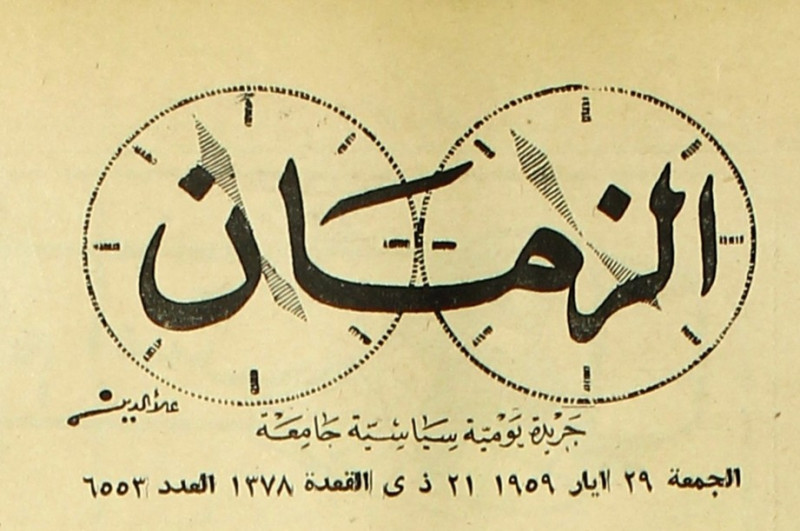 الزمان
علاء الدين
جَرِيْدَة يَوْمِيَّة سِيَاسِيَّة جَامِعَة
الجمعة ٢٩ ايار ١٩٥٩ ٢١ ذي القعدة ١٣٧٨ العدد ٦٥٥٣